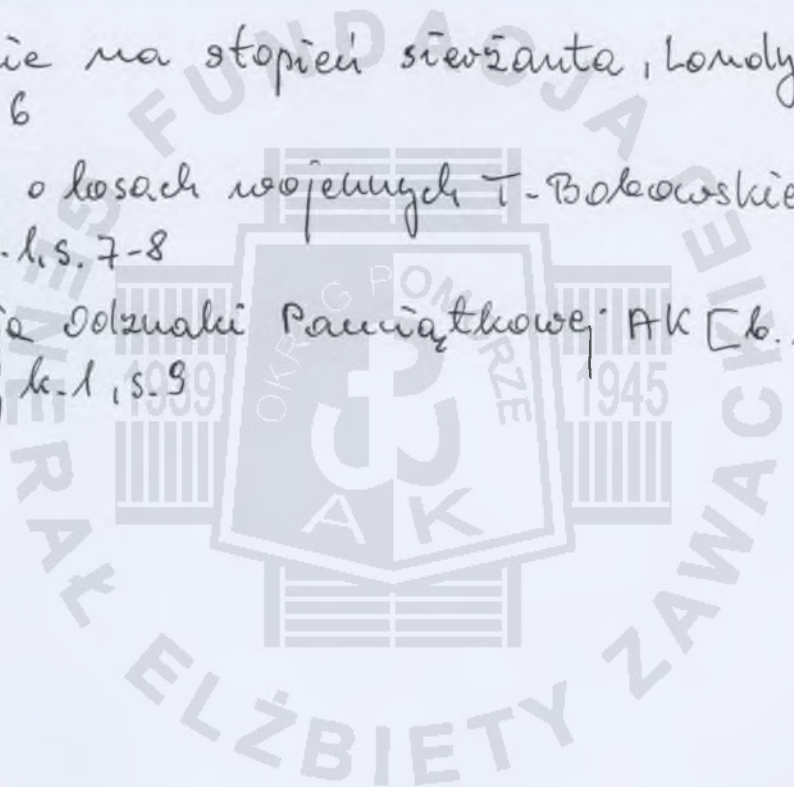 ie na stopień sierżanta, Londy
6
o losach wojennych T. Bokowskie
k.1, s. 7-8
a Odznaki Pamiątkowej AK [b.
k.1, s.9
FUNDACJA
GENERAŁ ELŻBIETY ZAWACKIEJ
OKRĘG POMORZE
1939
1945
AK